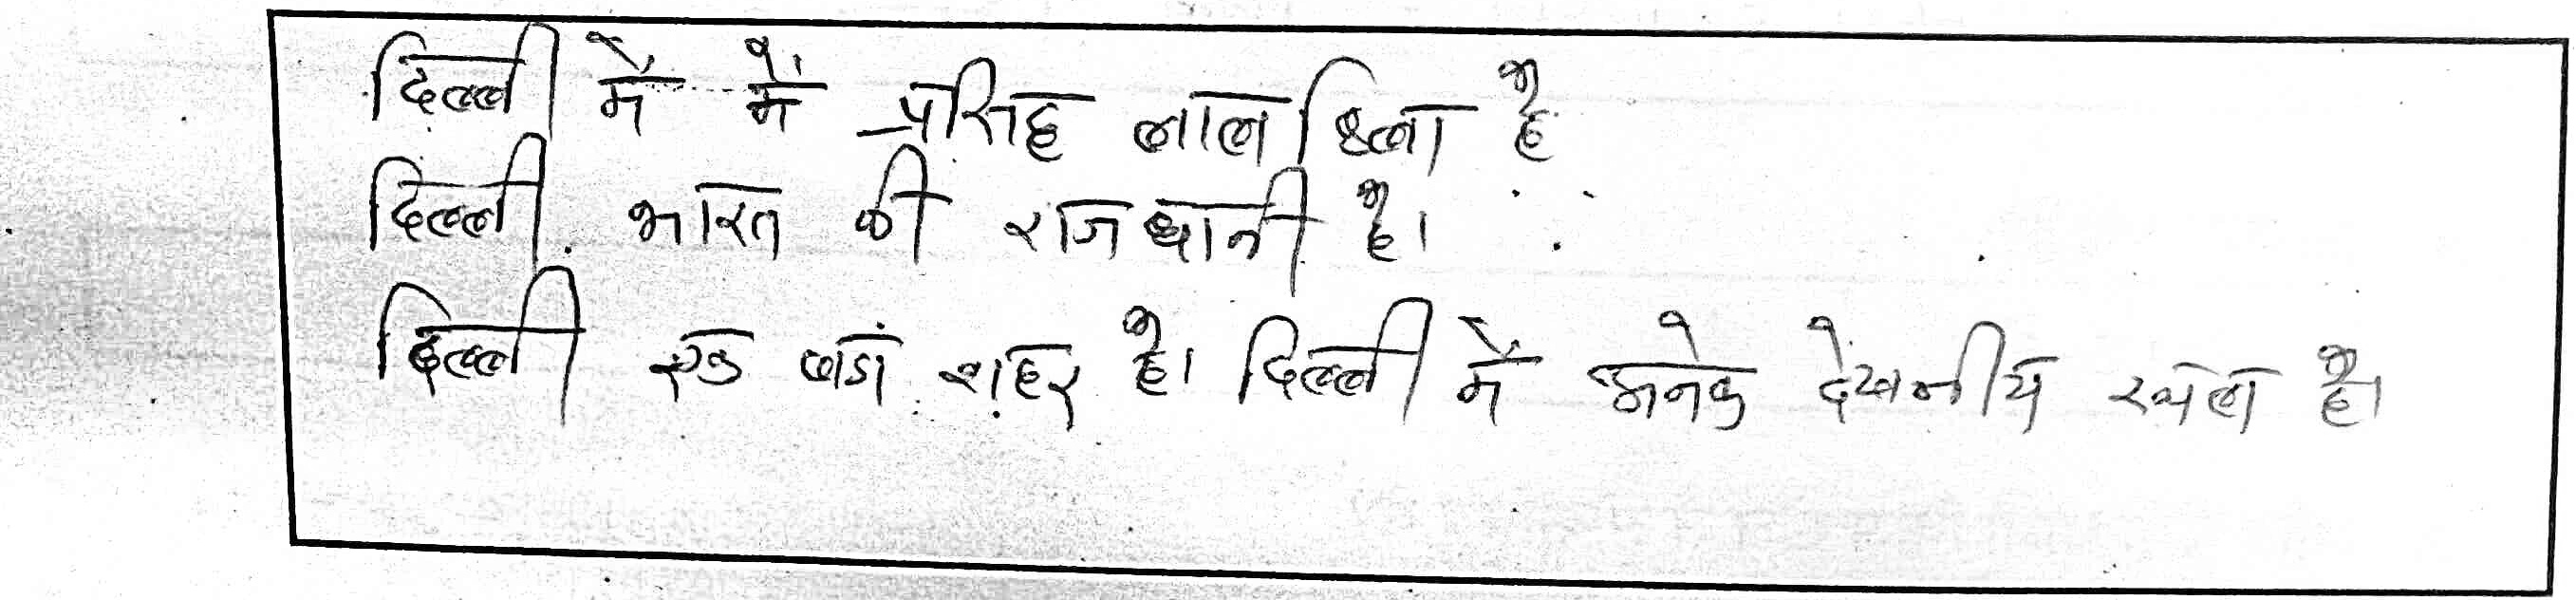 दिल्ली में में प्रसिद्ध लाल किला है
दिल्ली भारत की राजधानी है।
दिल्ली एक बडा शहर है। दिल्ली में अनेक देखनीय स्थल है।